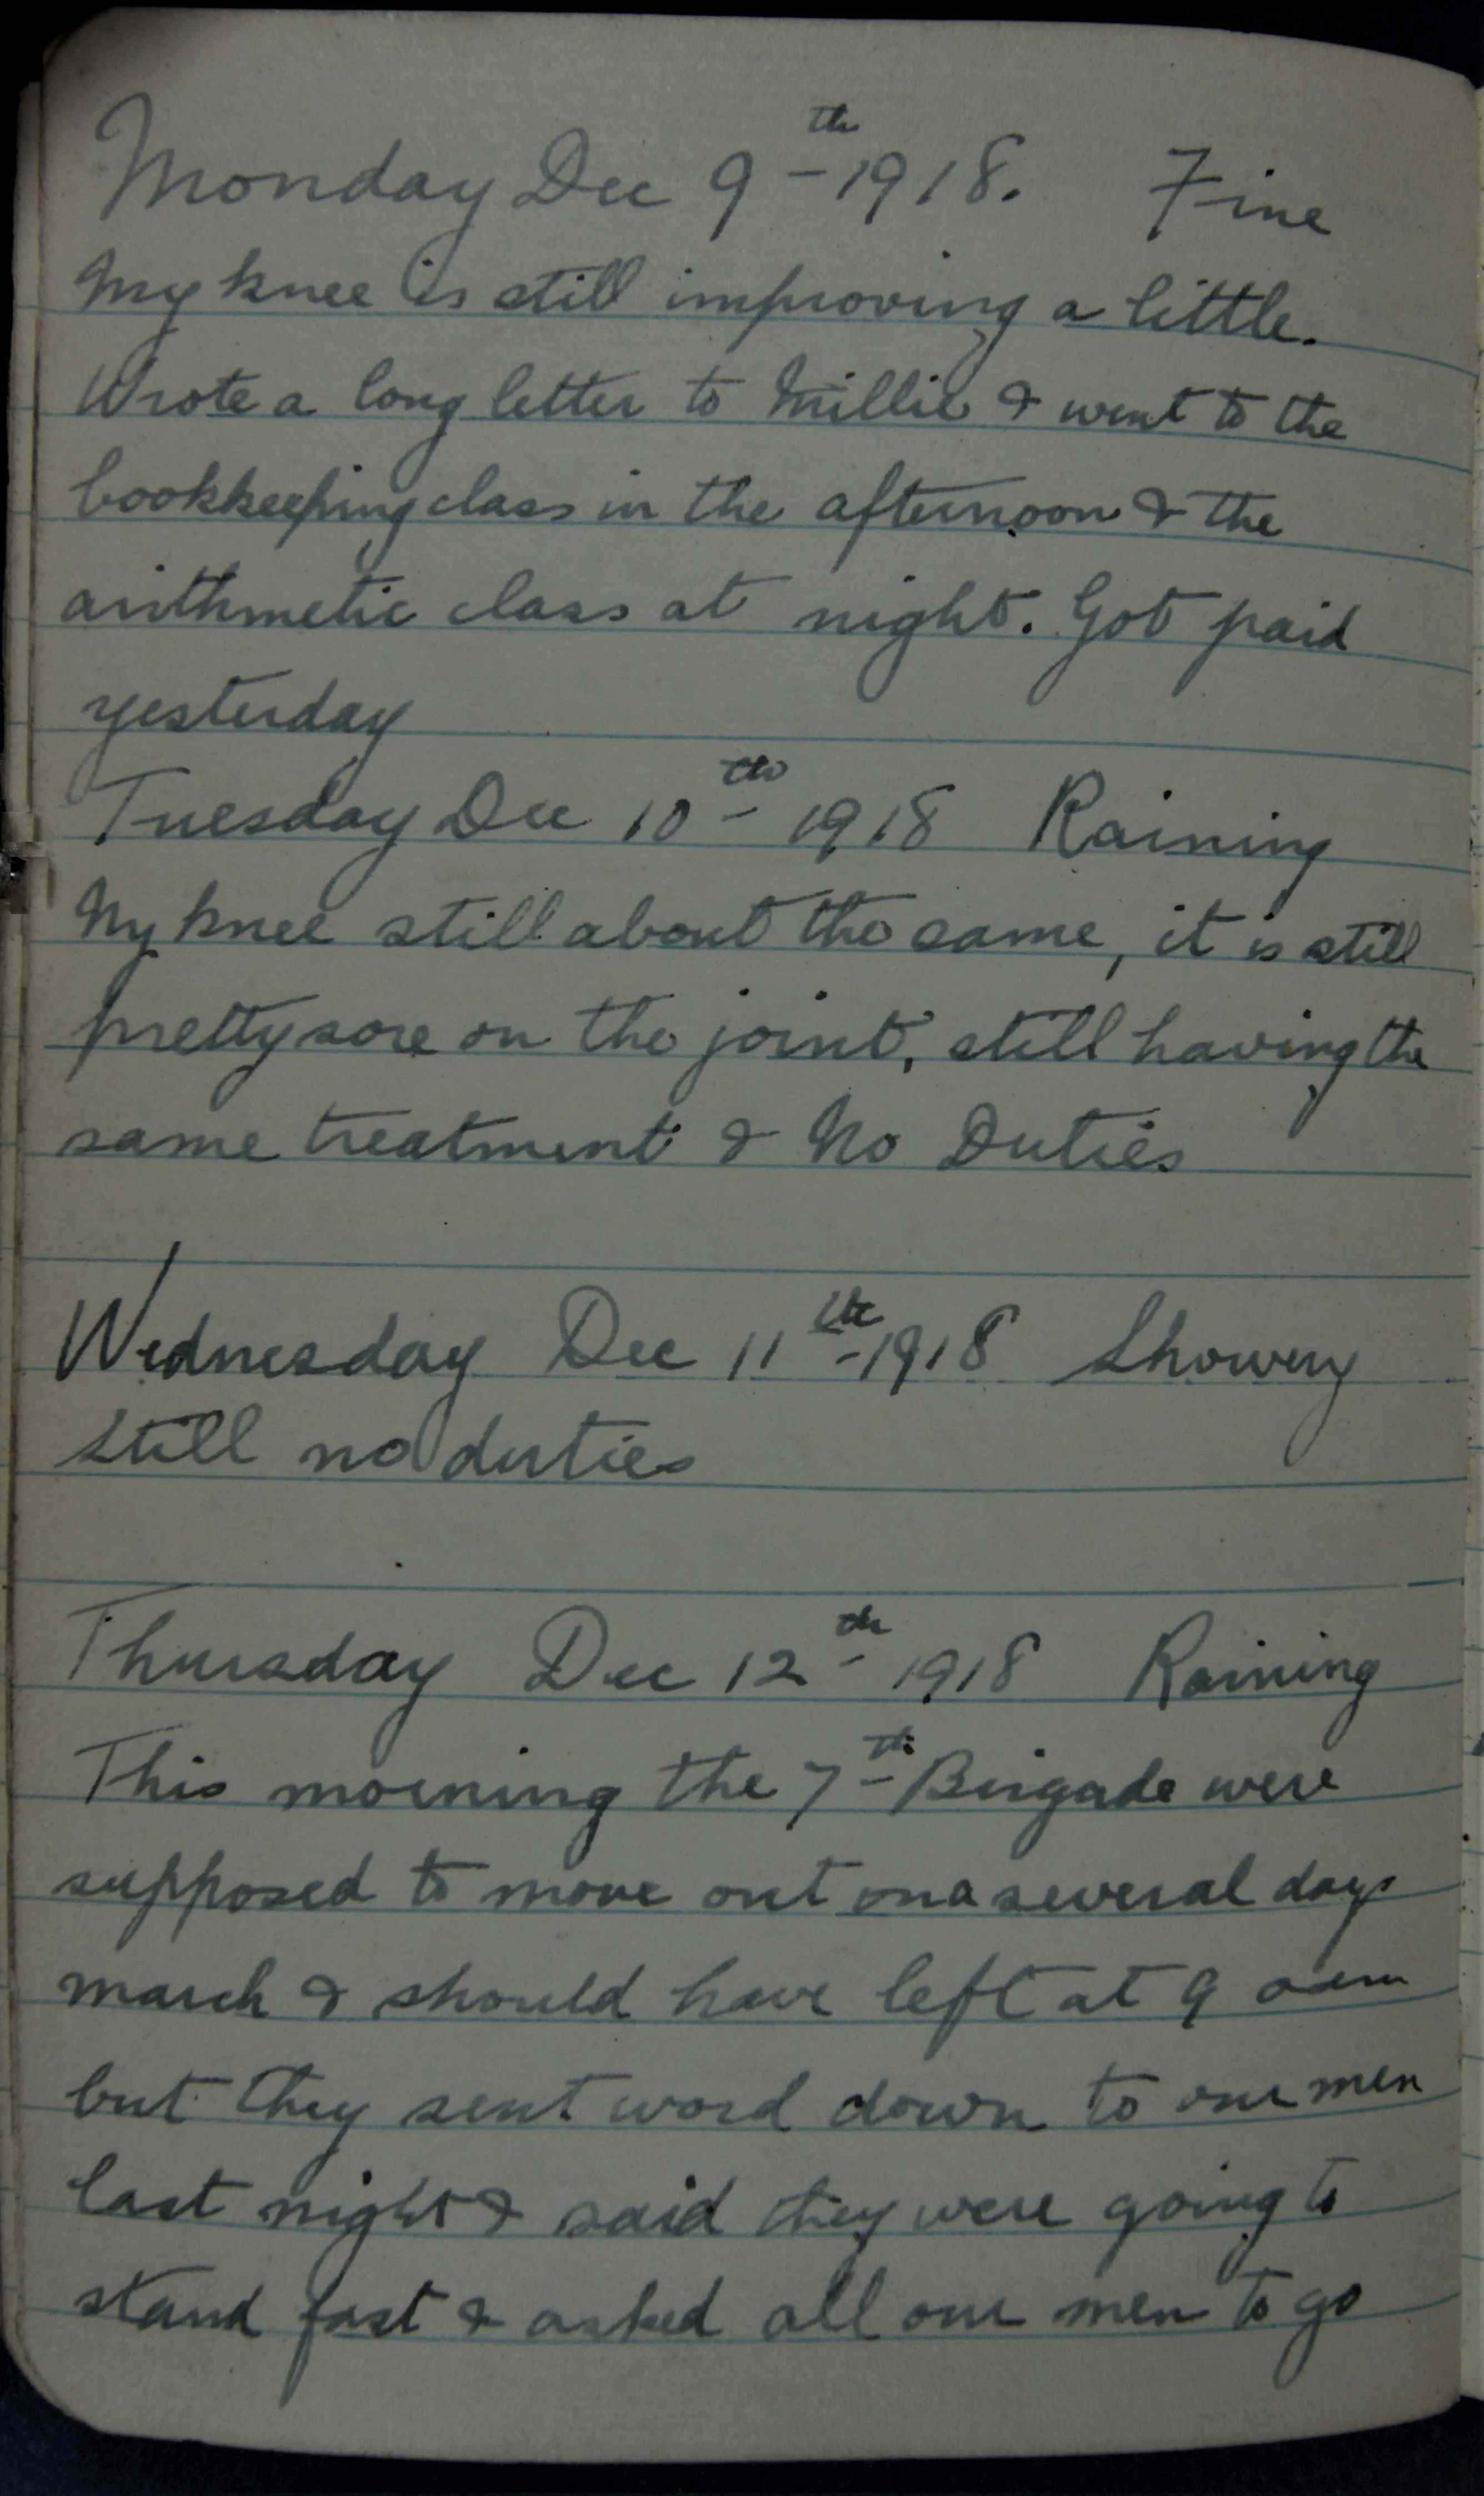 Monday Dec 9th 1918. Fine
My knee is still improving a little.
Wrote a long letter to Millie & went to the
bookkeeping class in the afternoon & the
arithmetic class at night. Got paid
yesterday
Tuesday Dec 10th 1918 Raining
My knee still about the same, it is still
pretty sore on the joint, still having the
same treatment & No Duties
Wednesday Dec 11th 1918 Showery
Still no duties
Thursday Dec 12th 1918 Raining
This morning the 7th Brigade were
supposed to move out on a several days
march & should have left at 9 am
but they sent word down to our men
last night & said they were going to
stand fast & asked all our men to go